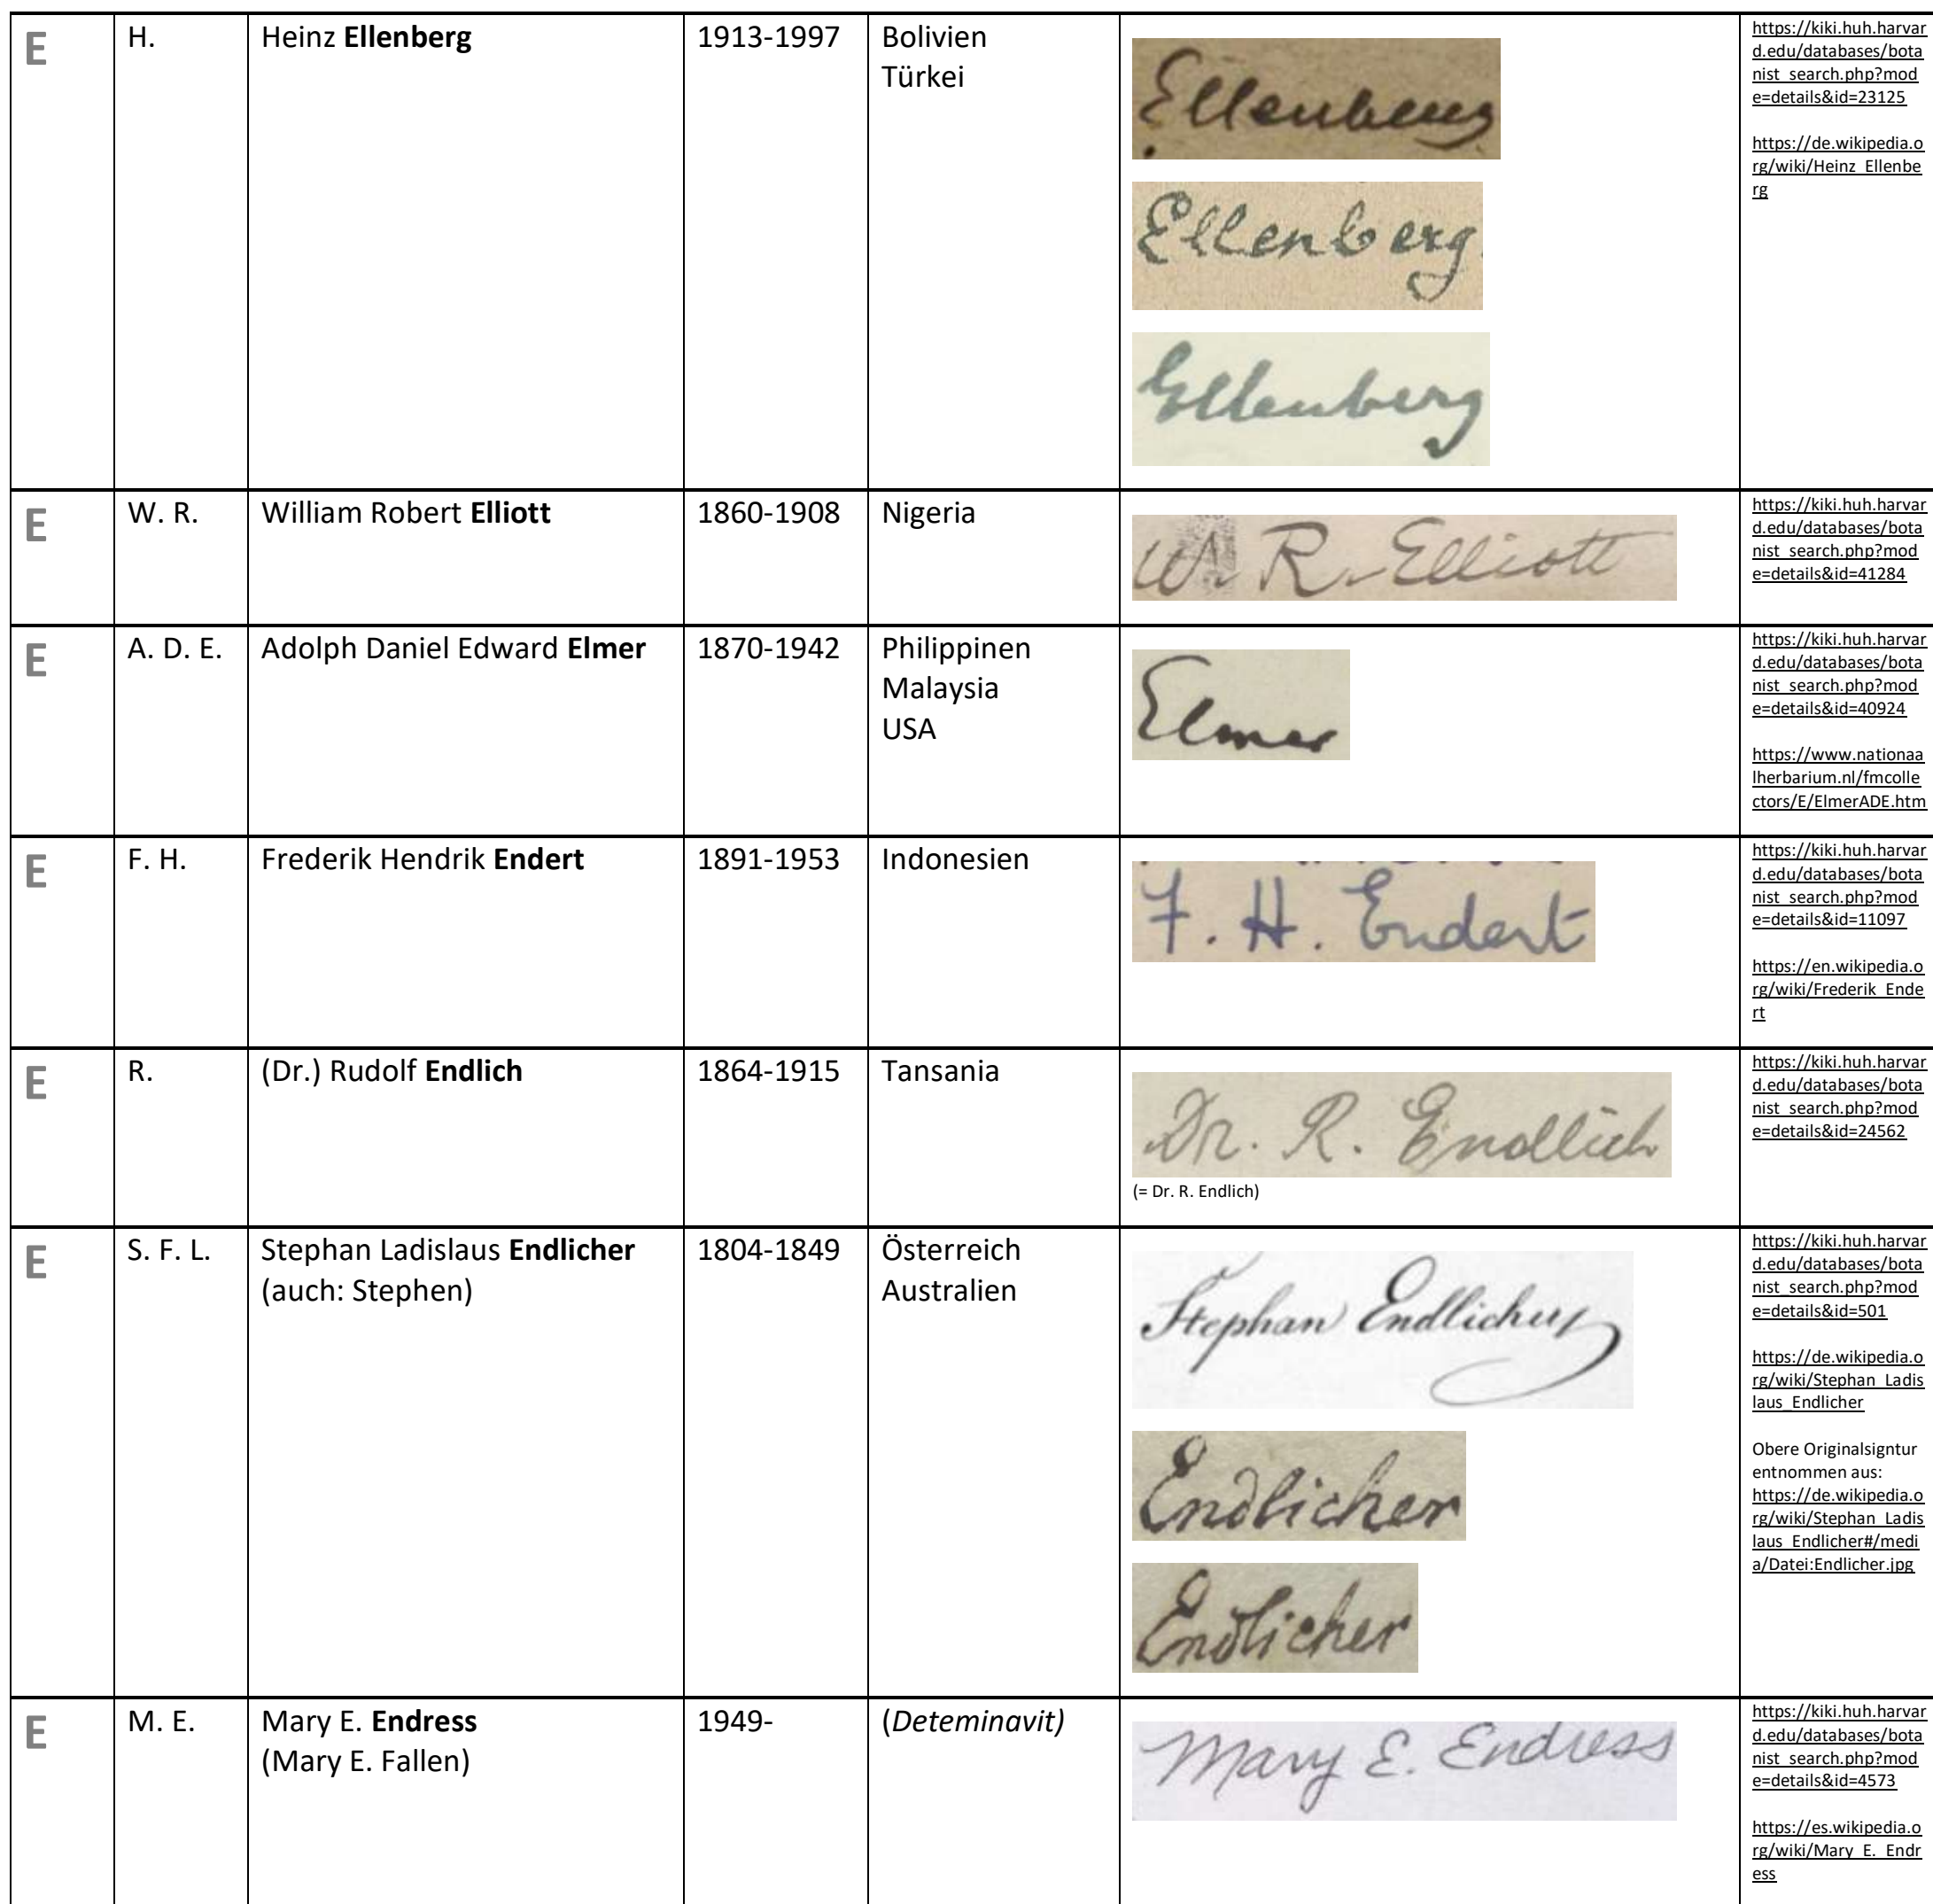 E H. Heinz Ellenberg 1913-1997 Bolivien
Türkei
Ellenberg
Ellenberg
Ellenberg
https://kiki.huh.harvar
d.edu/databases/bota
nist_search.php?mod
e=details&id=23125
https://de.wikipedia.o
rg/wiki/Heinz_Ellenbe
rg
E W. R. William Robert Elliott 1860-1908 Nigeria
W. R. Elliott
https://kiki.huh.harvar
d.edu/databases/bota
nist_search.php?mod
e=details&id=41284
E A. D. E. Adolph Daniel Edward Elmer 1870-1942 Philippinen
Malaysia
USA
Elmer
https://kiki.huh.harvar
d.edu/databases/bota
nist_search.php?mod
e=details&id=40924
https://www.nationaa
lherbarium.nl/fmcolle
ctors/E/ElmerADE.htm
E F. H. Frederik Hendrik Endert 1891-1953 Indonesien
F. H. Endert
https://kiki.huh.harvar
d.edu/databases/bota
nist_search.php?mod
e=details&id=11097
https://en.wikipedia.o
rg/wiki/Frederik_Ende
rt
E R. (Dr.) Rudolf Endlich 1864-1915 Tansania
Dr. R. Endlich
(= Dr. R. Endlich)
https://kiki.huh.harvar
d.edu/databases/bota
nist_search.php?mod
e=details&id=24562
E S. F. L. Stephan Ladislaus Endlicher 1804-1849 Österreich
(auch: Stephen) Australien
Stephan Endlicher
Endlicher
Endlicher
https://kiki.huh.harvar
d.edu/databases/bota
nist_search.php?mod
e=details&id=501
https://de.wikipedia.o
rg/wiki/Stephan_Ladis
laus_Endlicher
Obere Originalsigntur
entnommen aus:
https://de.wikipedia.o
rg/wiki/Stephan_Ladis
laus_Endlicher#/medi
a/Datei:Endlicher.jpg
E M. E. Mary E. Endress 1949- (Deteminavit)
(Mary E. Fallen)
Mary E. Endress
https://kiki.huh.harvar
d.edu/databases/bota
nist_search.php?mod
e=details&id=4573
https://es.wikipedia.o
rg/wiki/Mary_E._Endr
ess